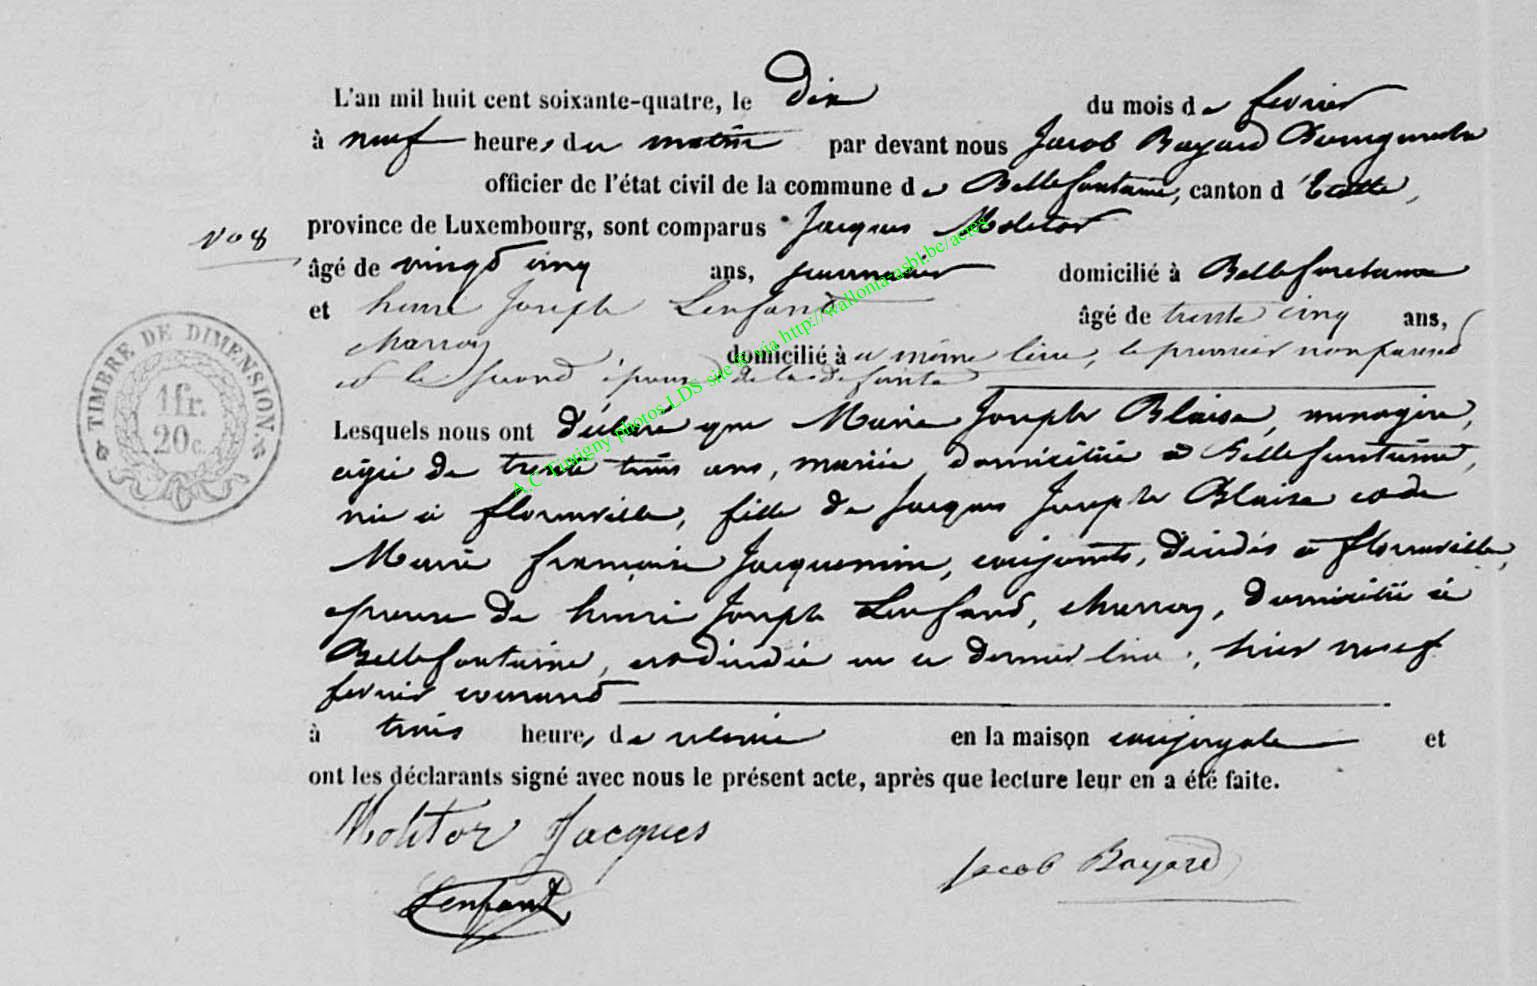 L'an mil huit cent soixante-quatre, le dix du mois de fevrier
à neuf heures du matin par devant nous Jacob Bayard Bourgmestre
officier de l'état civil de la commune de Bellefontaine, canton d'Etalle,
N° 8
province de Luxembourg, sont comparus Jacques Molitor
âgé de vingt cinq ans, journalier domicilié à Bellefontaine
et henri Joseph Lenfant âgé de trente cinq ans,
charron domicilié à ce même lieu, le premier non parent
et le second époux de la defunte
Lesquels nous ont déclaré que Marie Joseph Blaise, menagère,
agée de trente trois ans, mariée, domiciliée à Bellefontaine,
née à florenville, fille de Jacques Joseph Blaise et de
Marie françoise Jacquemin, conjoints, décédés à florenville,
epouse de henri Joseph Lenfant, charron, domicilié à
Bellefontaine, est décédée en ce dernier lieu, hier neuf
fevrier courant
à trois heures de relevée en la maison conjugale et
ont les déclarants signé avec nous le présent acte, après que lecture leur en a été faite.
Molitor Jacques
Jacob Bayard
Lenfant
TIMBRE DE DIMENSION
1fr.
20c.
A.C Tintigny photos LDS site via http://wallonia-asbl.be/actes